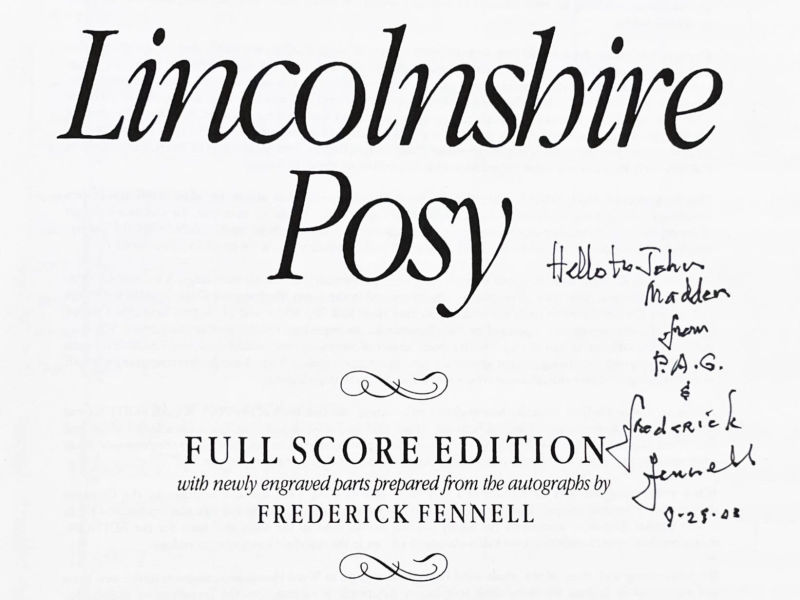 Lincolnshire
Posy
Hello to John
Madden
from
P.A.G.
&
Frederick
Fennell
FULL SCORE EDITION
with newly engraved parts prepared from the autographs by
FREDERICK FENNELL